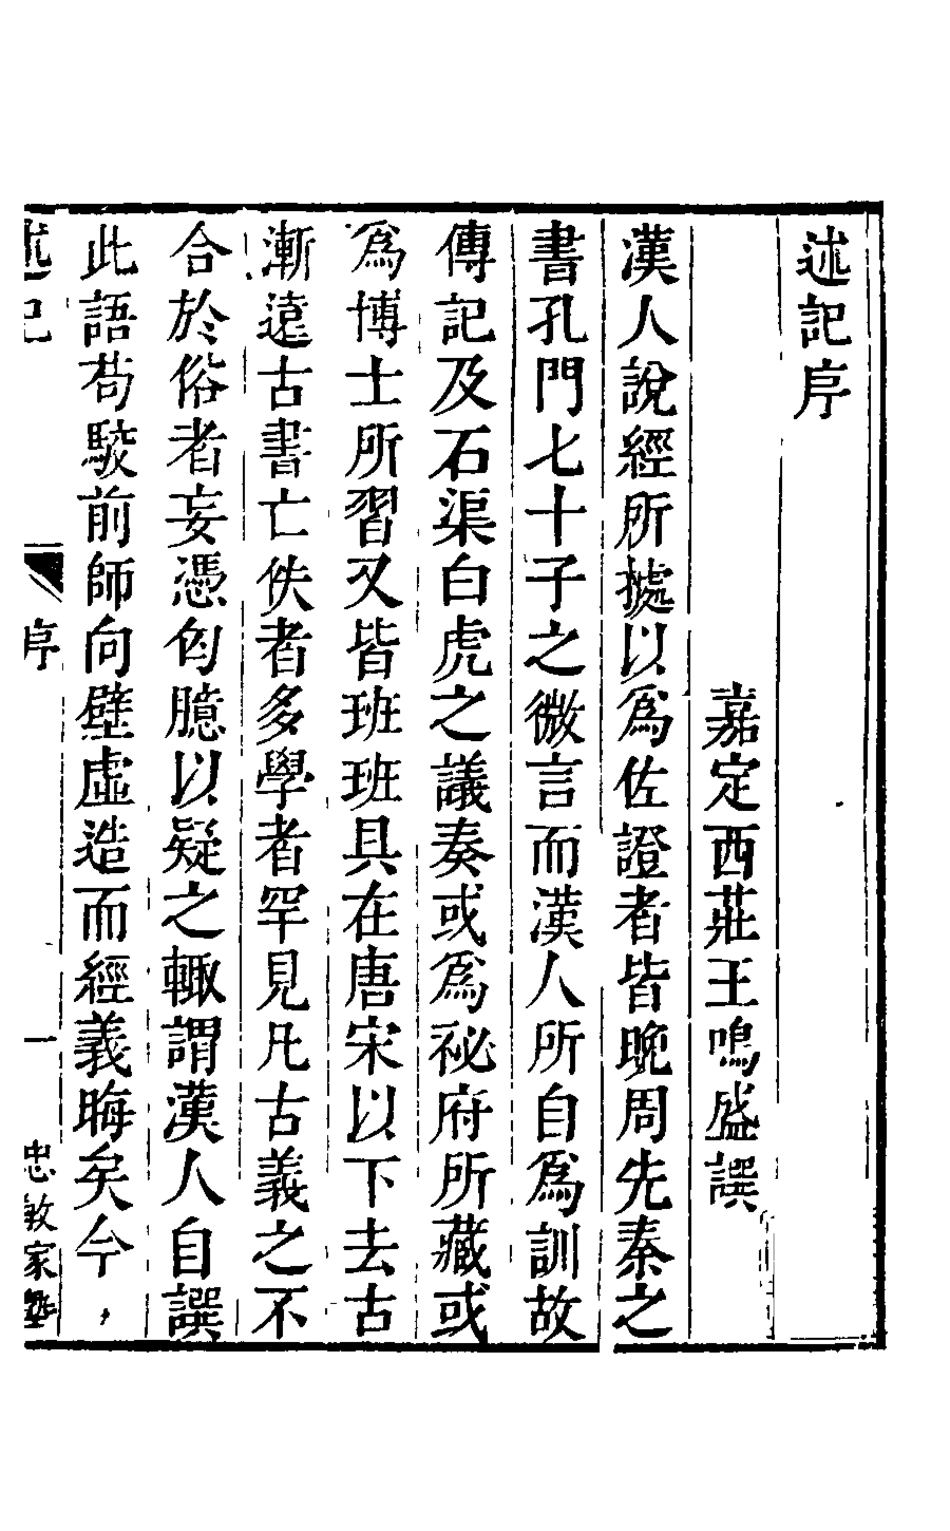 述記序
嘉定西莊王鳴盛譔
漢人說經所據以爲佐證者皆晚周先秦之
書孔門七十子之微言而漢人所自爲訓故
傳記及石渠白虎之議奏或爲祕府所藏或
爲博士所習又皆班班具在唐宋以下去古
漸遠古書亡佚者多學者罕見凡古義之不
合於俗者妄憑匈臆以疑之輒謂漢人自譔
此語苟駮前師向壁虛造而經義晦矣今
述記
序
一
忠敏家塾